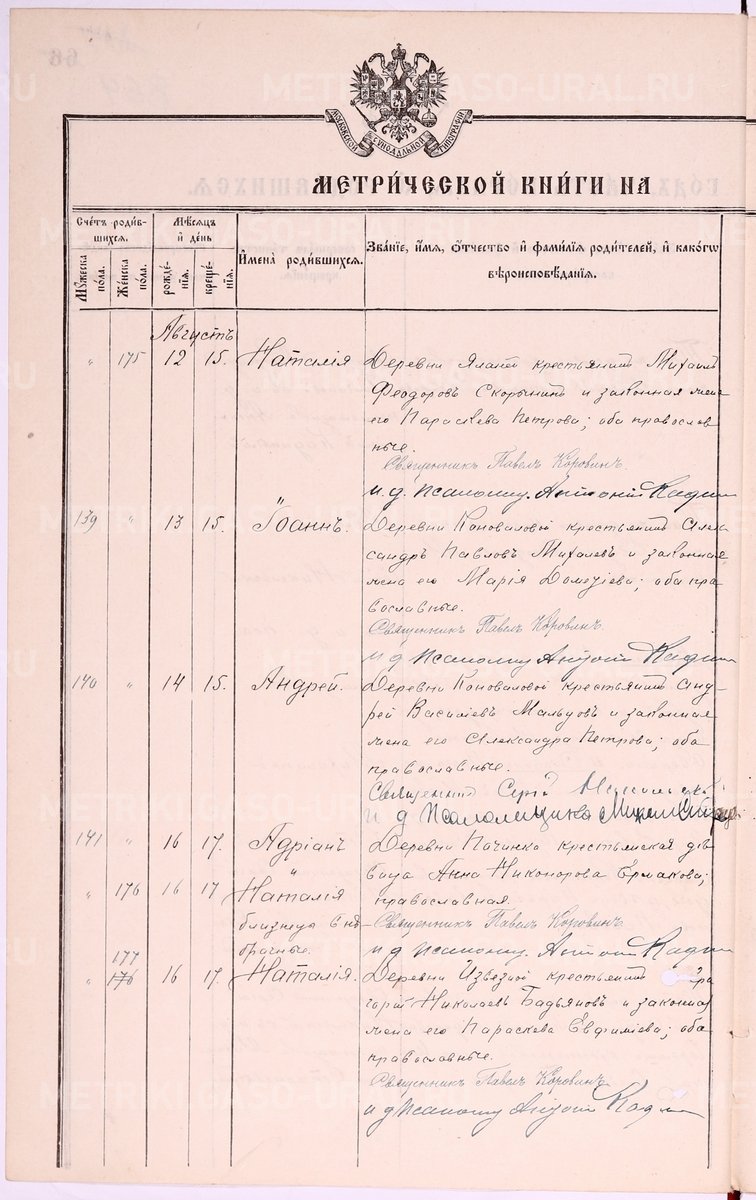 МОСКОВСКОЙ СѴНОДАЛЬНОЙ ТИПОГРАФІИ
МЕТРИ́ЧЕСКОЙ КНИ́ГИ НА
Сче́тъ роди́в-
шихся.
Мѣ́сяцъ
и҆ де́нь
И҆мена̀ роди́вшихся.
Зва́нїе, и҆́мя, о҆́тчество и҆ фами́лїя роди́телей, и҆ како́гѡ
вѣроисповѣ́данїя.
Мꙋ́жеска по́ла.
Же́нска по́ла.
рожде́нїя.
креще́нїя.
Августъ
" 175 12 15. Наталія Деревни крестьянинъ Михаилъ
Феодоровъ Скорынинъ и законная жена
его Параскева Петрова; оба православ
ные.
Священникъ Павелъ Коровинъ.
И. д. Псаломщ. Антоній
139 " 13 15. Іоаннъ. Деревни Коноваловой крестьянинъ Алек-
сандръ Павловъ Михалевъ и законная
жена его Марія Дометіева; оба пра-
вославные.
Священникъ Павелъ Коровинъ.
И д Псаломщ Антоній
140 " 14 15. Андрей. Деревни Коноваловой крестьянинъ Анд-
рей Василіевъ Мальцовъ и законная
жена его Александра Петрова; оба
православные.
Священникъ Сергій
и д Псаломщика
141 " 16 17. Адріанъ Деревни Починка крестьянская дѣ-
вица Анна Никонорова Ермакова;
" 176 16 17 Наталія православная.
близнецы внѣ- Священникъ Павелъ Коровинъ.
брачные. И д Псаломщ. Антоній
177
" 176 16 17. Наталія. Деревни крестьянинъ
горій Николаевъ Бадьяновъ и законная
жена его Параскева Евфиміева; оба
православные.
Священникъ Павелъ Коровинъ
и д Псаломщ Антоній
METRIKI.GASO-URAL.RU